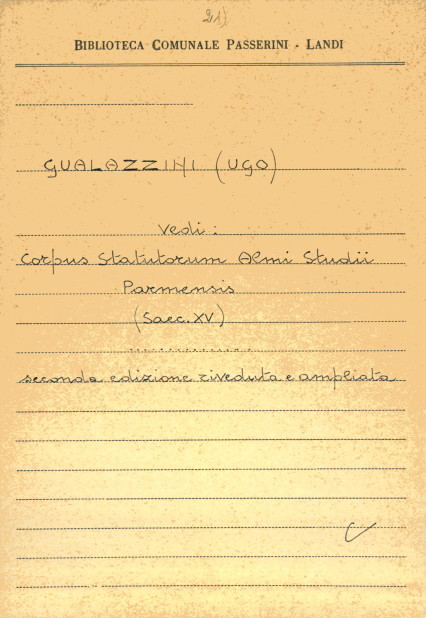 21)
BIBLIOTECA COMUNALE PASSERINI - LANDI
GUALAZZINI (UGO)
Vedi:
Corpus Statutorum Almi Studii
Parmensis
(Saec. XV)
..............
seconda edizione riveduta e ampliata